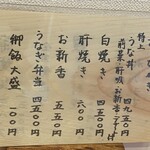 特上
うな丼 四九五〇
前菜・肝吸・お新香・デザート
白焼き 四五〇〇
肝焼き 六〇〇
お新香 五五〇
うなぎ弁当 四五〇〇
御飯大盛 一〇〇円